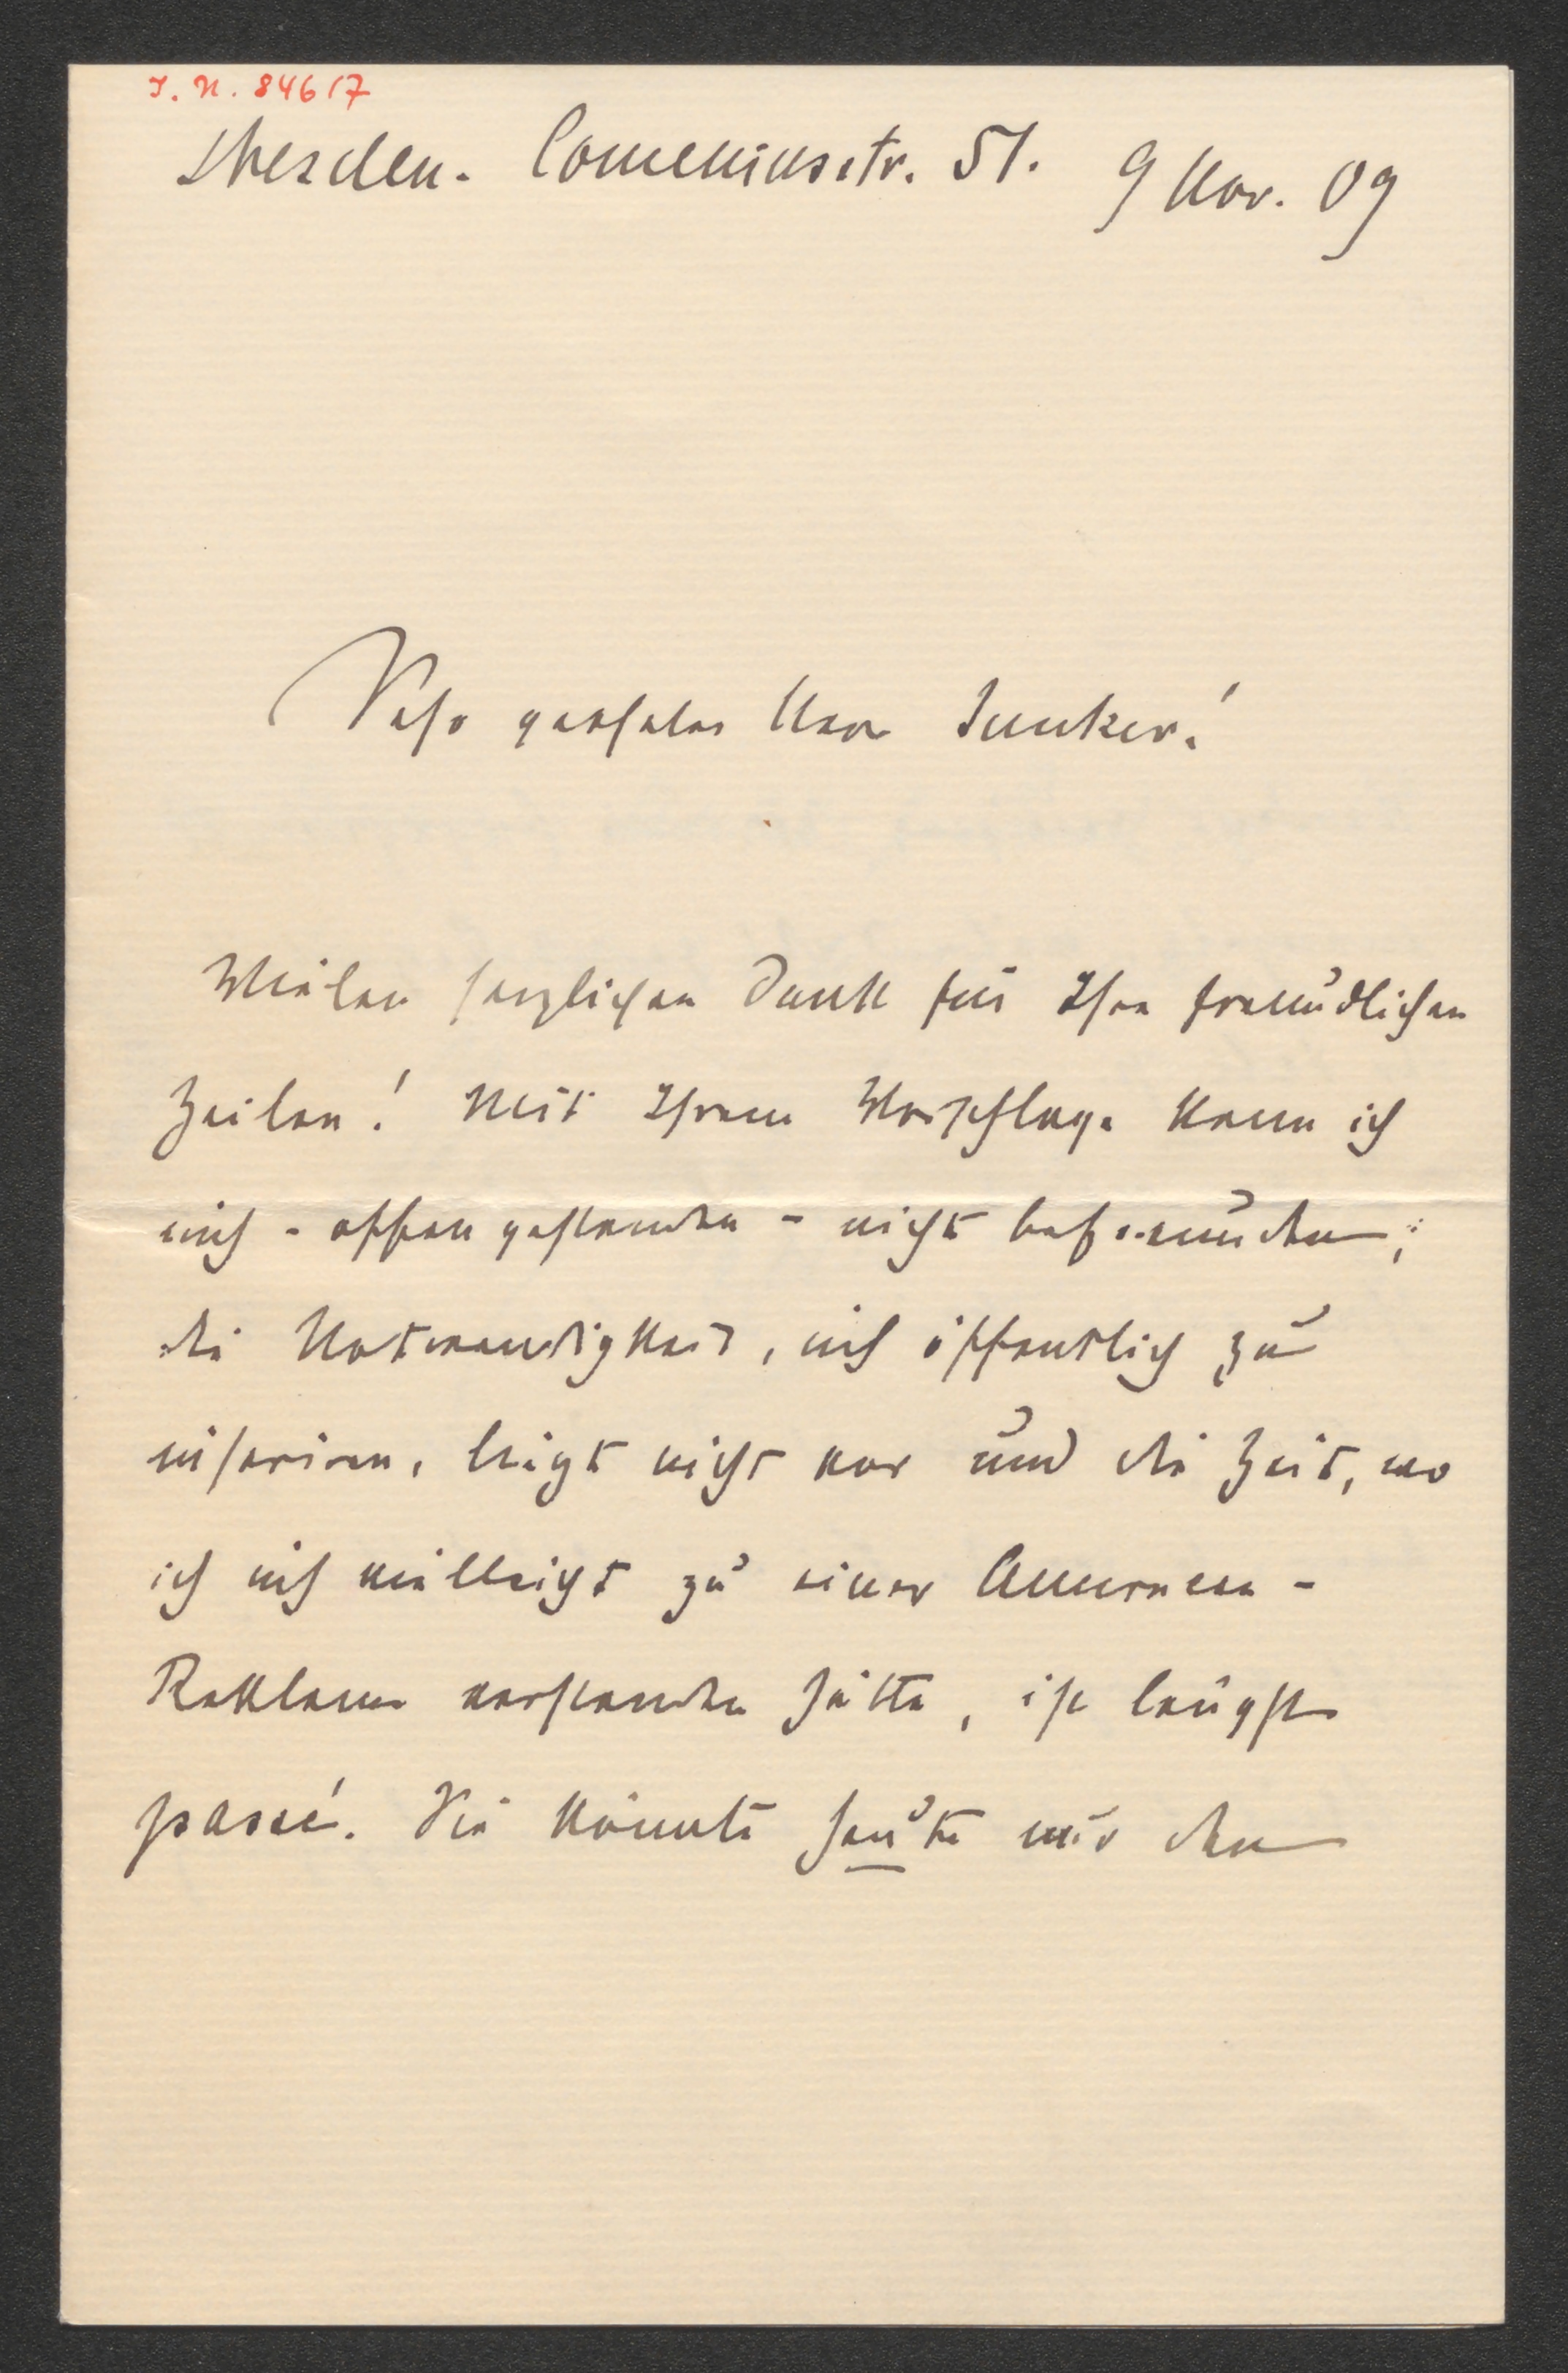 I. N. 84617
Dresden. Comeniusstr. 51. 9 Nov. 09
Sehr geehrter Herr Junker!
Vielen herzlichen Dank für Ihre freundlichen
Zeilen! Mit Ihrem Vorschlage kann ich
mich - offen gestanden - nicht befreunden;
die Notwendigkeit, mich öffentlich zu
inseriren, liegt nicht vor und die Zeit, wo
ich mich vielleicht zu einer Annoncen-
Reklame verstanden hätte, ist längst
passé. Sie könnte heute mir den